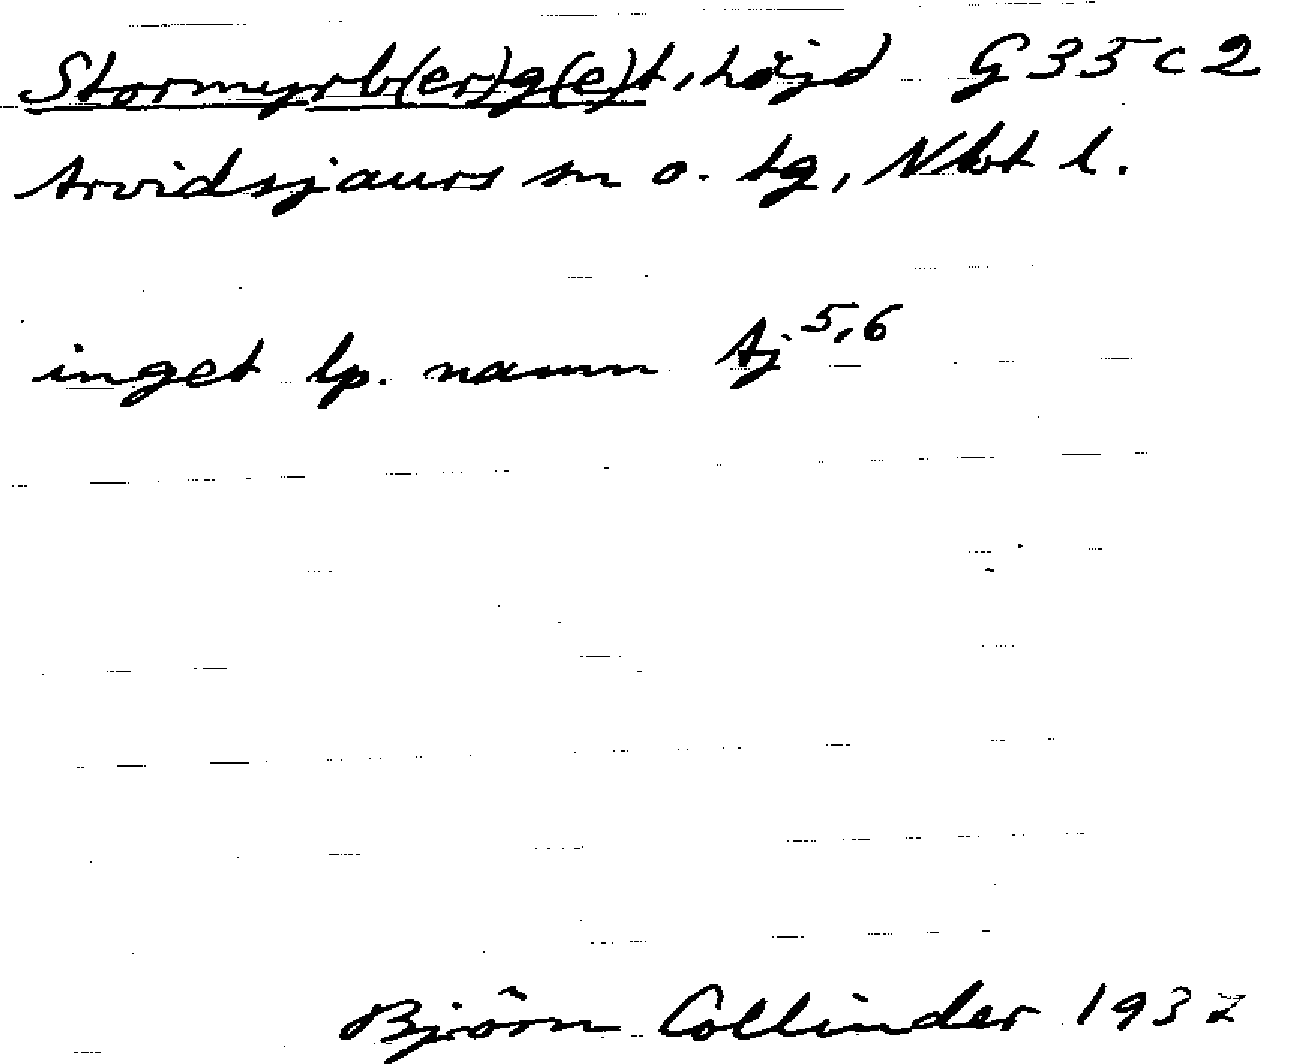 Stormyrb(er)g(e)t, höjd G 35 c 2
Arvidsjaurs sn o. tg, Nbt l.
inget lp. namn Aj 5,6
Björn Collinder 1932